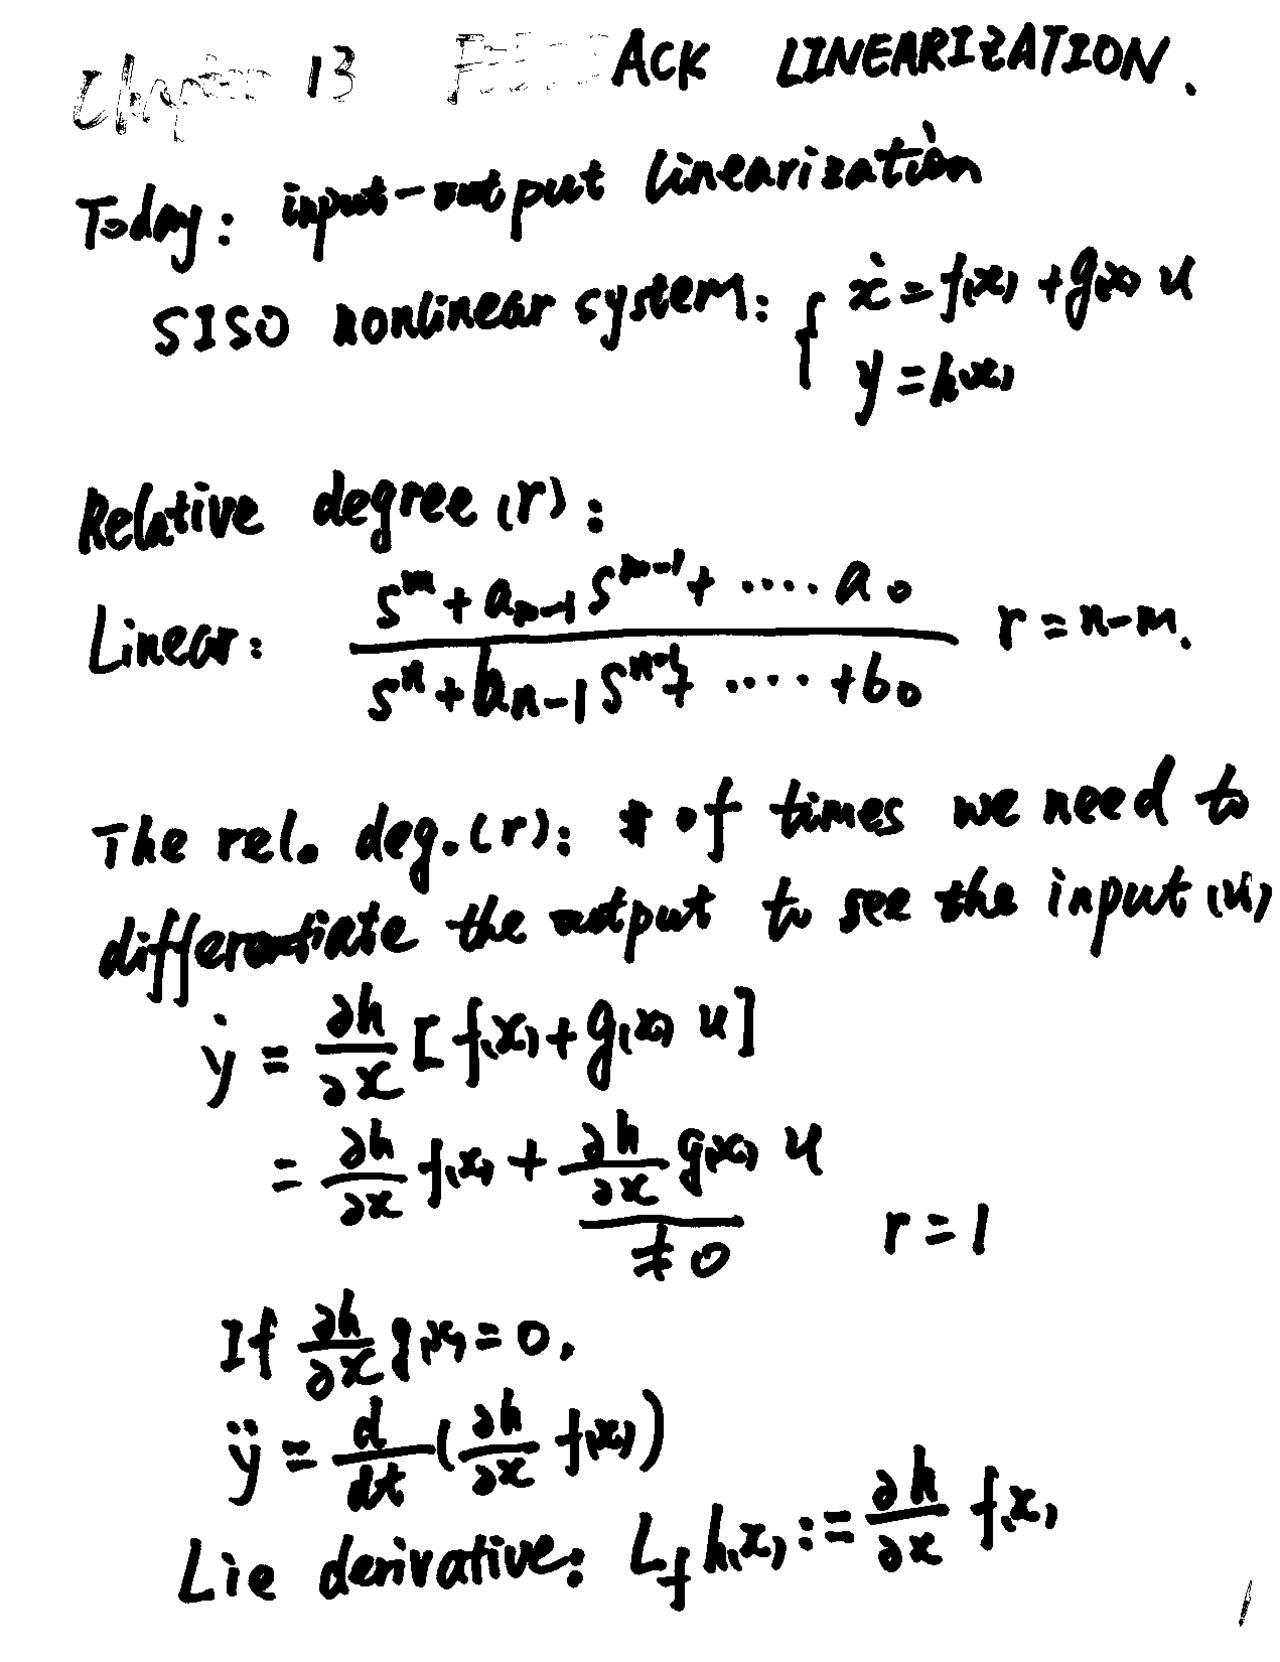 Chapter 13 FEEDBACK LINEARIZATION.
Today: input-output linearization
SISO nonlinear system: { ẋ = f(x) + g(x) u
y = h(x)
Relative degree (r):
Linear: (s^m + a_{m-1} s^{m-1} + .... a_0) / (s^n + b_{n-1} s^{n-1} + .... + b_0) r = n-m.
The rel. deg. (r): # of times we need to
differentiate the output to see the input (u)
ẏ = ∂h/∂x [f(x) + g(x) u]
= ∂h/∂x f(x) + ∂h/∂x g(x) u
≠ 0 r = 1
If ∂h/∂x g(x) = 0,
ÿ = d/dt (∂h/∂x f(x))
Lie derivative: L_f h(x) := ∂h/∂x f(x)
1